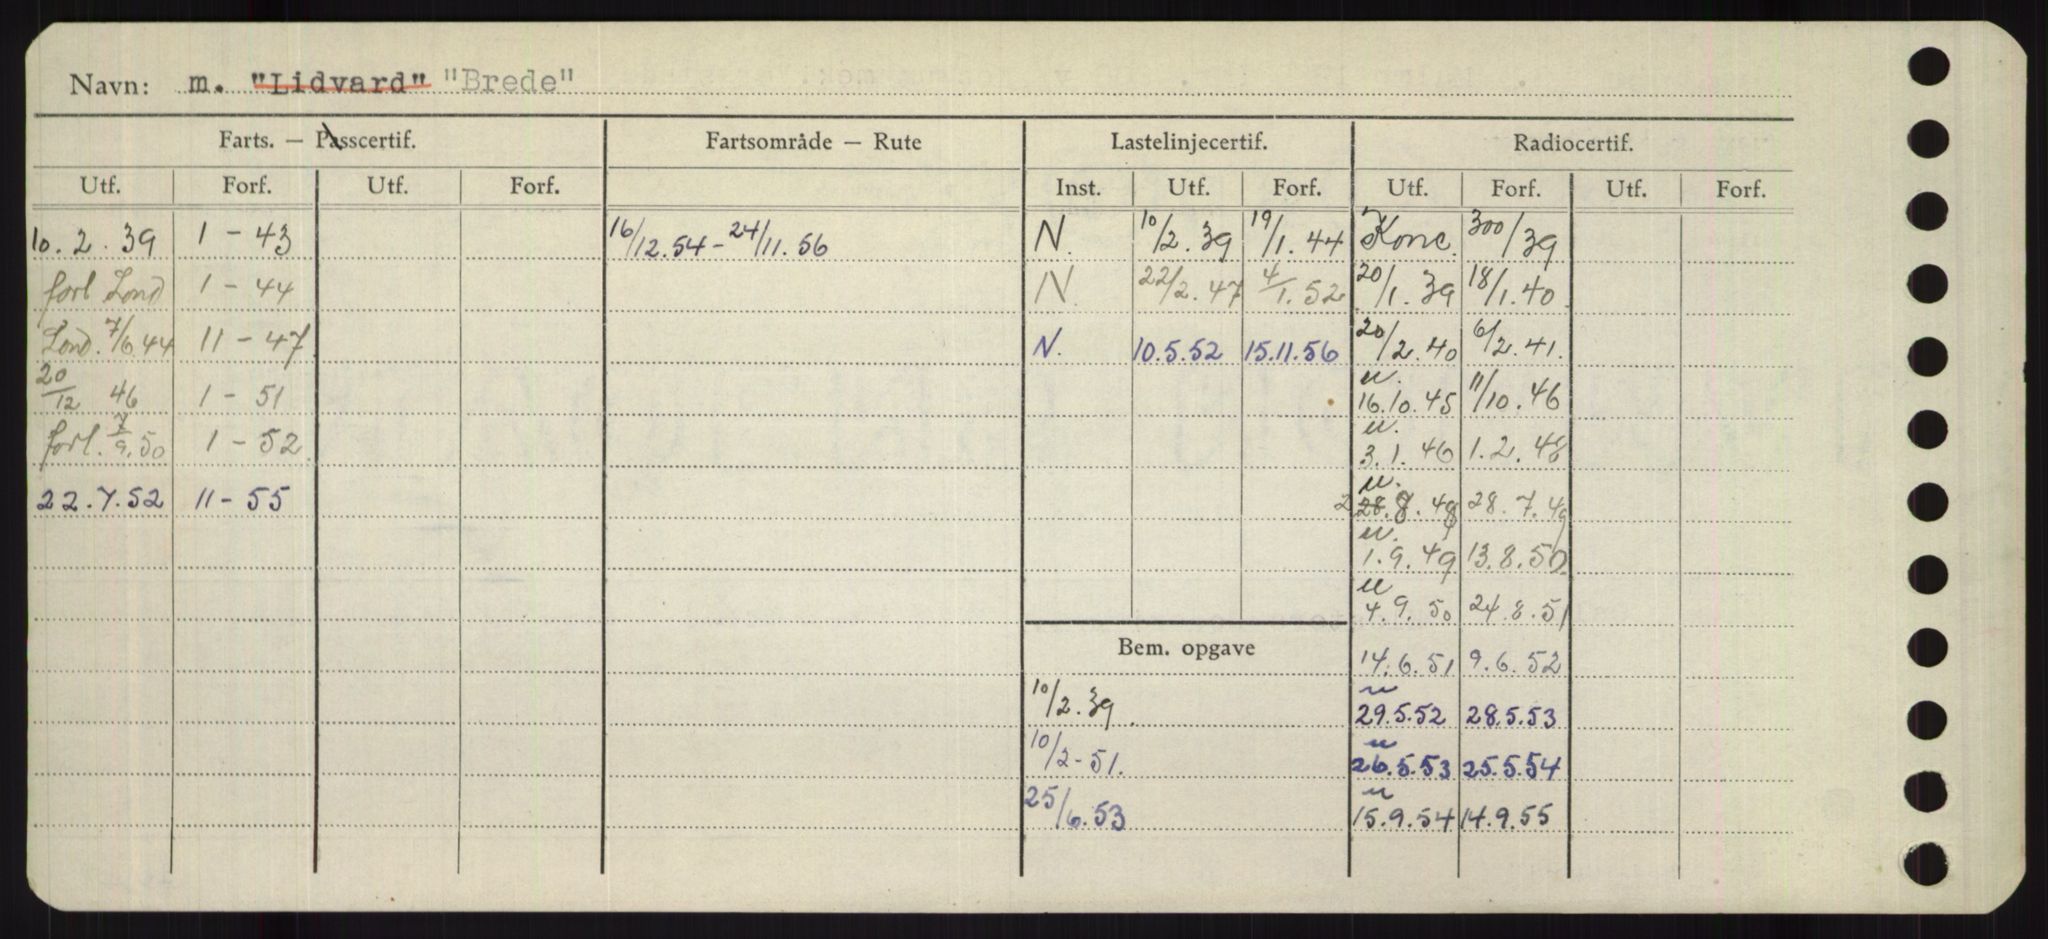 Navn: m. "Lidvard" "Brede"
Farts. — Passcertif. Fartsområde — Rute Lastelinjecertif. Radiocertif.
Utf. Forf. Utf. Forf. Inst. Utf. Forf. Utf. Forf. Utf. Forf.
10.2.39 1-43 16/12.54-24/11.56 N. 10/2.39 19/1.44 Konc. 300/39
forl Lond 1-44 N. 22/2.47 4/1.52 20/1.39 18/1.40.
Lond. 7/6.44 11-47 N. 10.5.52 15.11.56 20/2.40 6/2.41.
20/12 46 1-51 u. 16.10.45 11/10.46
forl. 7/9.50 1-52 u. 3.1.46 1.2.48
22.7.52 11-55 u. 28.8.48 28.7.49
u. 1.9.49 13.8.50
u 4.9.50 24.8.51
Bem. opgave 14.6.51 9.6.52
10/2.39. u 29.5.52 28.5.53
10/2-51. u 26.5.53 25.5.54
25/6.53 u 15.9.54 14.9.55